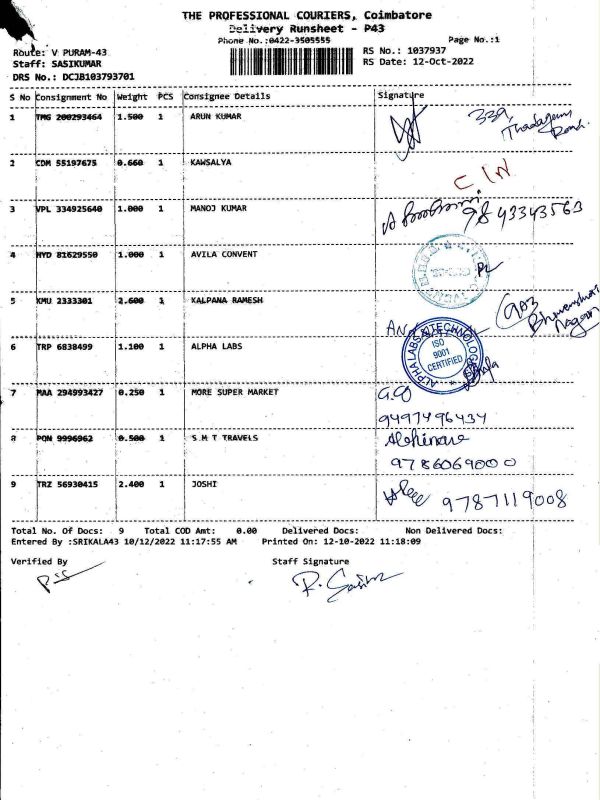 THE PROFESSIONAL COURIERS, Coimbatore
Delivery Runsheet - P43
Phone No.:0422-3505555
Page No.:1
Route: V PURAM-43
RS No.: 1037937
Staff: SASIKUMAR
RS Date: 12-Oct-2022
DRS No.: DCJB103793701
S No Consignment No Weight PCS Consignee Details Signature
1 TMG 200293464 1.500 1 ARUN KUMAR 339,
Thadagam
Road.
2 CDM 55197675 0.660 1 KAWSALYA
3 VPL 334925640 1.000 1 MANOJ KUMAR 9843343563
4 HYD 81629550 1.000 1 AVILA CONVENT
5 KMU 2333301 2.600 1 KALPANA RAMESH
6 TRP 6838499 1.100 1 ALPHA LABS
ALPHA LABS & TECHNOLOGI
ISO
9001
CERTIFIED
7 MAA 294993427 0.250 1 MORE SUPER MARKET
9497496434
8 PON 9996962 0.500 1 S M T TRAVELS
9786069000
9 TRZ 56930415 2.400 1 JOSHI 9787119008
Total No. Of Docs: 9 Total COD Amt: 0.00 Delivered Docs: Non Delivered Docs:
Entered By :SRIKALA43 10/12/2022 11:17:55 AM Printed On: 12-10-2022 11:18:09
Verified By Staff Signature